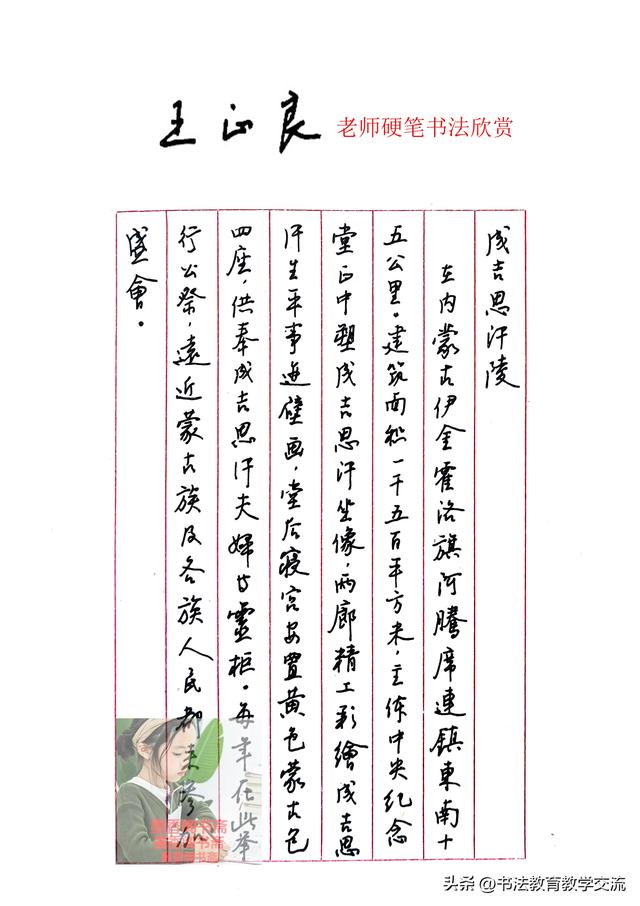 王正良 老师硬笔书法欣赏
成吉思汗陵
在内蒙古伊金霍洛旗阿腾席连镇東南十
五公里。建筑面积一千五百平方米，主体中央纪念
堂正中塑成吉思汗坐像，两廊精工彩繪成吉思
汗生平事迹壁画，堂后寝宫安置黄色蒙古包
四座，供奉成吉思汗夫婦等靈柩。每年在此举
行公祭，遠近蒙古族及各族人民都来參加
盛會。
头条 @书法教育教学交流